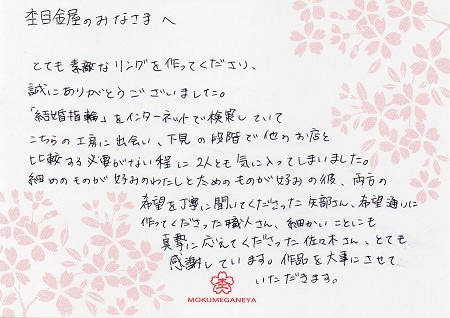 杢目金屋のみなさまへ
とても素敵なリングを作ってくださり、
誠にありがとうございました。
「結婚指輪」をインターネットで検索していて
こちらの工房に出会い、下見の段階で他のお店と
比較する必要がない程に2人とも気に入ってしまいました。
細めのものが好みのわたしと太めのものが好みの彼、両方の
希望を丁寧に聞いてくださった矢部さん、希望通りに
作ってくださった職人さん、細かいことにも
真摯に応えてくださった佐々木さん、とても
感謝しています。作品を大事にさせて
いただきます。
杢
MOKUMEGANEYA